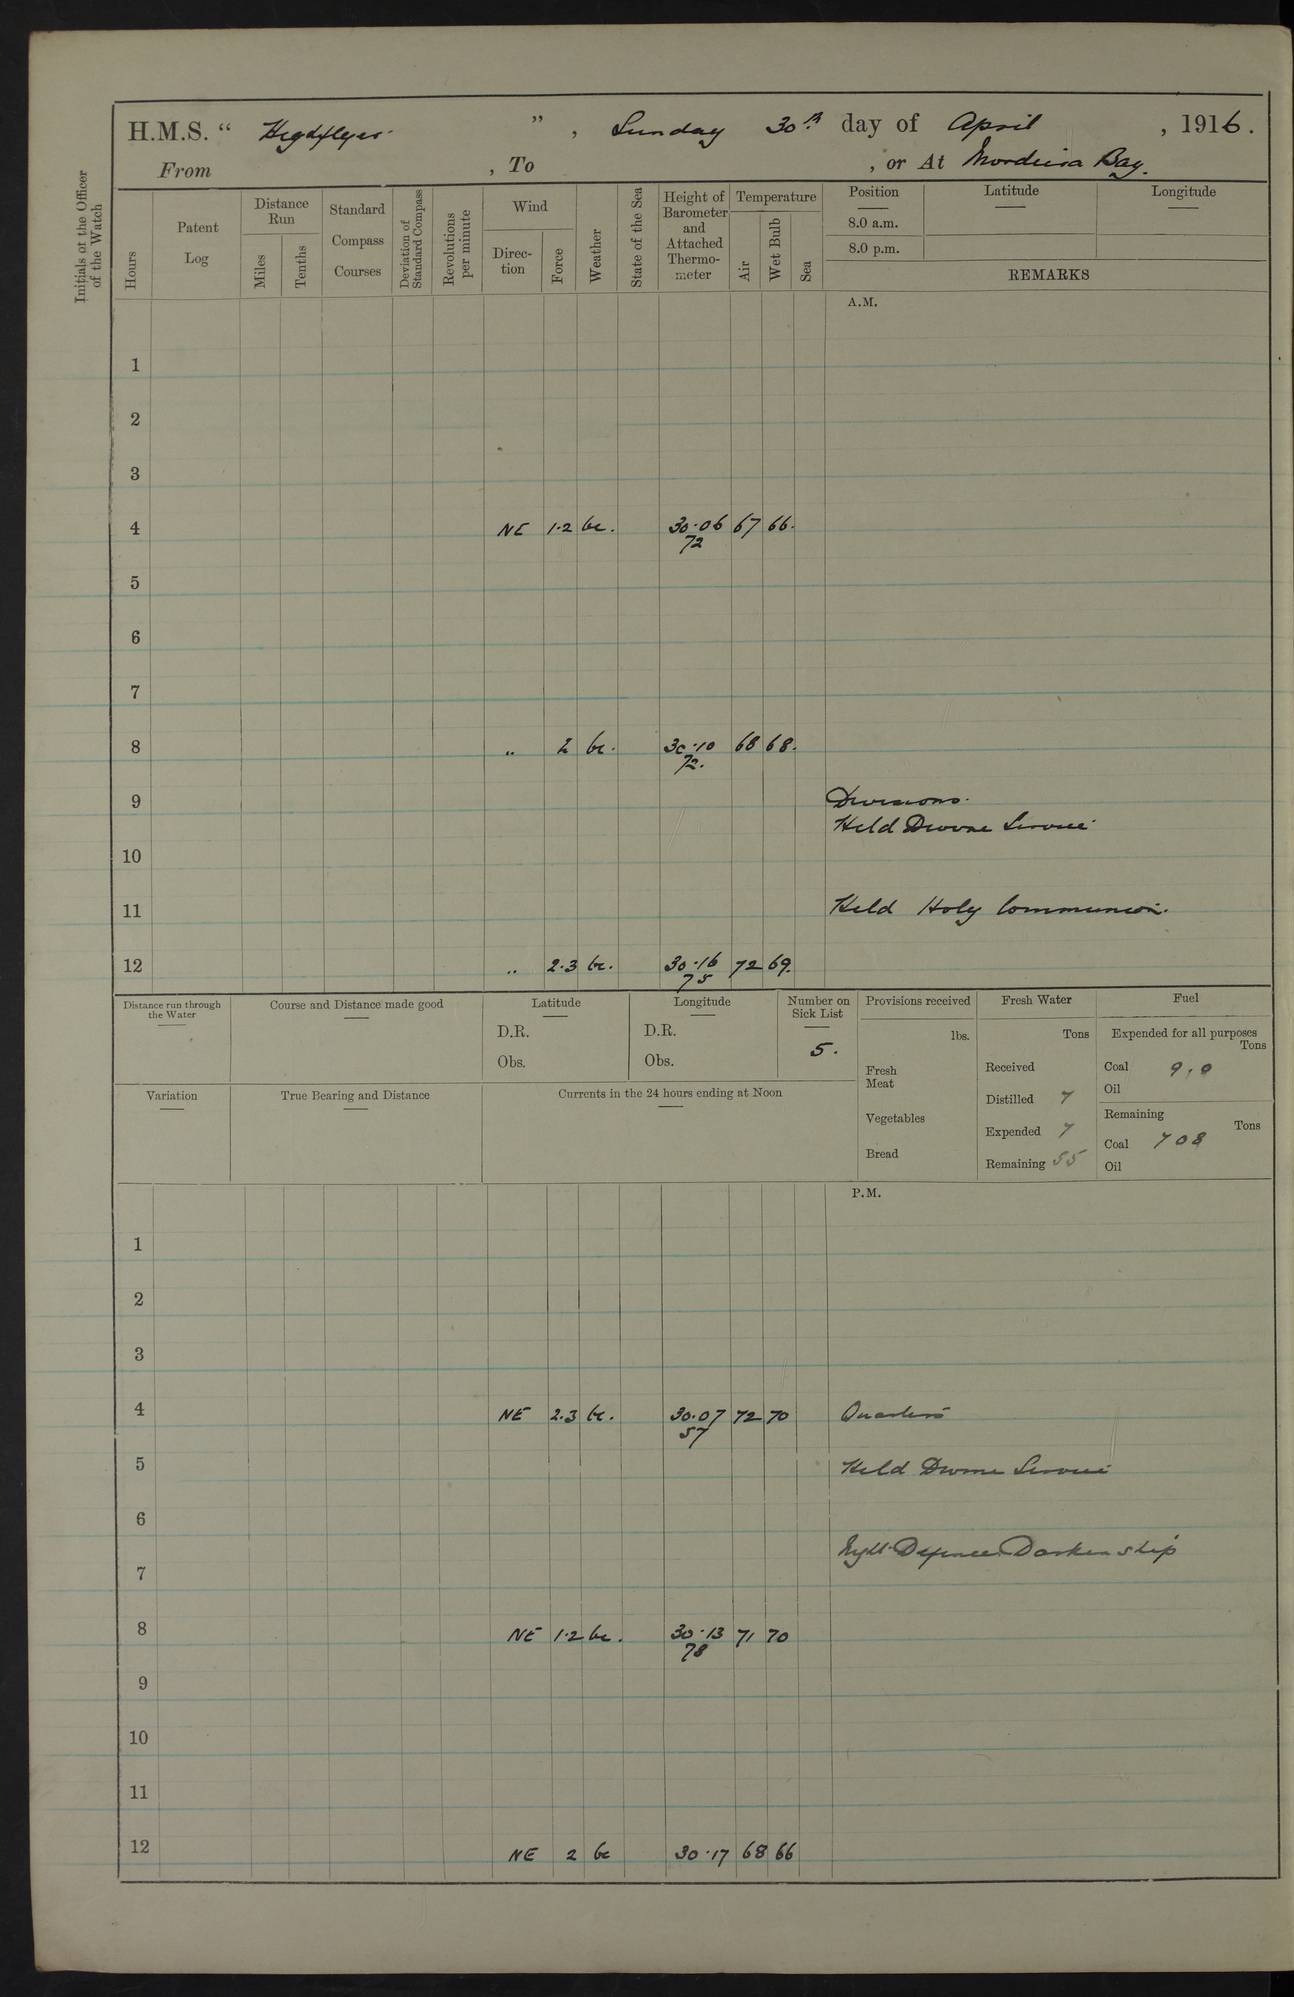 H.M.S. “ Highflyer ” , Sunday 30th day of April , 1916.
From , To , or At Mordeira Bay.
Initials of the Officer of the Watch
Hours
Patent Log
Distance Run
Miles
Tenths
Standard Compass Courses
Deviation of Standard Compass
Revolutions per minute
Wind
Direction
Force
Weather
State of the Sea
Height of Barometer and Attached Thermometer
Temperature
Air
Wet Bulb
Sea
Position Latitude Longitude
8.0 a.m.
8.0 p.m.
REMARKS
A.M.
1
2
3
4 NE 1.2 bc. 30.06 67 66.
72
5
6
7
8 „ 2 bc. 30.10 68 68.
72.
9 Divisions.
Held Divine Service
10
11 Held Holy Communion.
12 „ 2.3 bc. 30.16 72 69.
75
Distance run through the Water
Course and Distance made good
Latitude
D.R.
Obs.
Longitude
D.R.
Obs.
Number on Sick List
5.
Provisions received
lbs.
Fresh Meat
Vegetables
Bread
Fresh Water
Tons
Received
Distilled 7
Expended 7
Remaining 55
Fuel
Expended for all purposes
Tons
Coal 9.0
Oil
Remaining
Tons
Coal 708
Oil
Variation
True Bearing and Distance
Currents in the 24 hours ending at Noon
P.M.
1
2
3
4 NE 2.3 bc. 30.07 72 70 Quarters
57
5 Held Divine Service
6
Night Defence Darken ship
7
8 NE 1.2 bc. 30.13 71 70
78
9
10
11
12 NE 2 bc 30.17 68 66